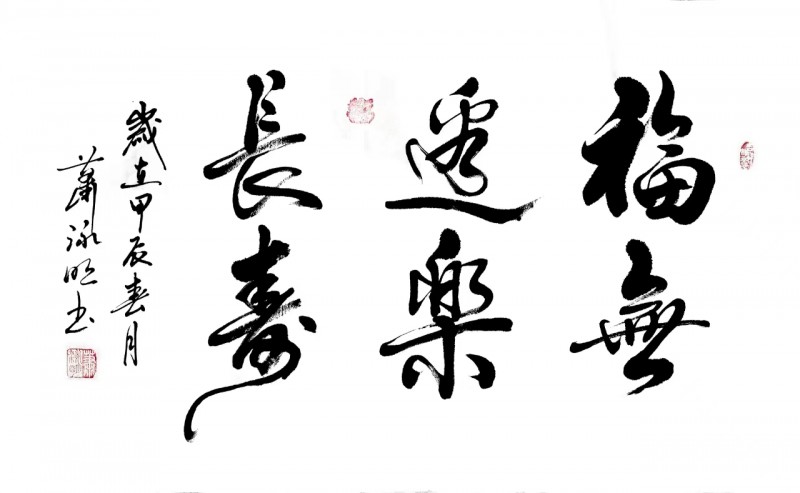 福無
邊樂
長壽
歲在甲辰春月
蕭泳明书